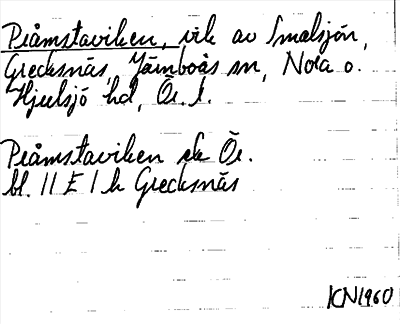 Pråmstaviken, vik av Smalsjön,
Grecksnäs, Järnboås sn, Nora o.
Hjulsjö hd, Ör. l.
Pråmstaviken ek Ör.
bl. 11 E 1 h Grecksnäs
KN1960